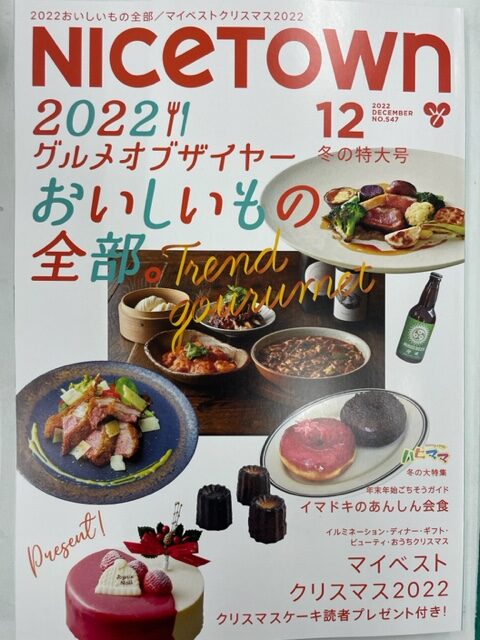 2022おいしいもの全部／マイベストクリスマス2022
NICETOWN
2022
グルメオブザイヤー
おいしいもの
全部。
12
2022
DECEMBER
NO.547
冬の特大号
Trend
gourumet
ハピママ
冬の大特集
年末年始ごちそうガイド
イマドキのあんしん会食
イルミネーション・ディナー・ギフト・
ビューティ・おうちクリスマス
マイベスト
クリスマス2022
クリスマスケーキ読者プレゼント付き!
Present!
Joyeux
Noël